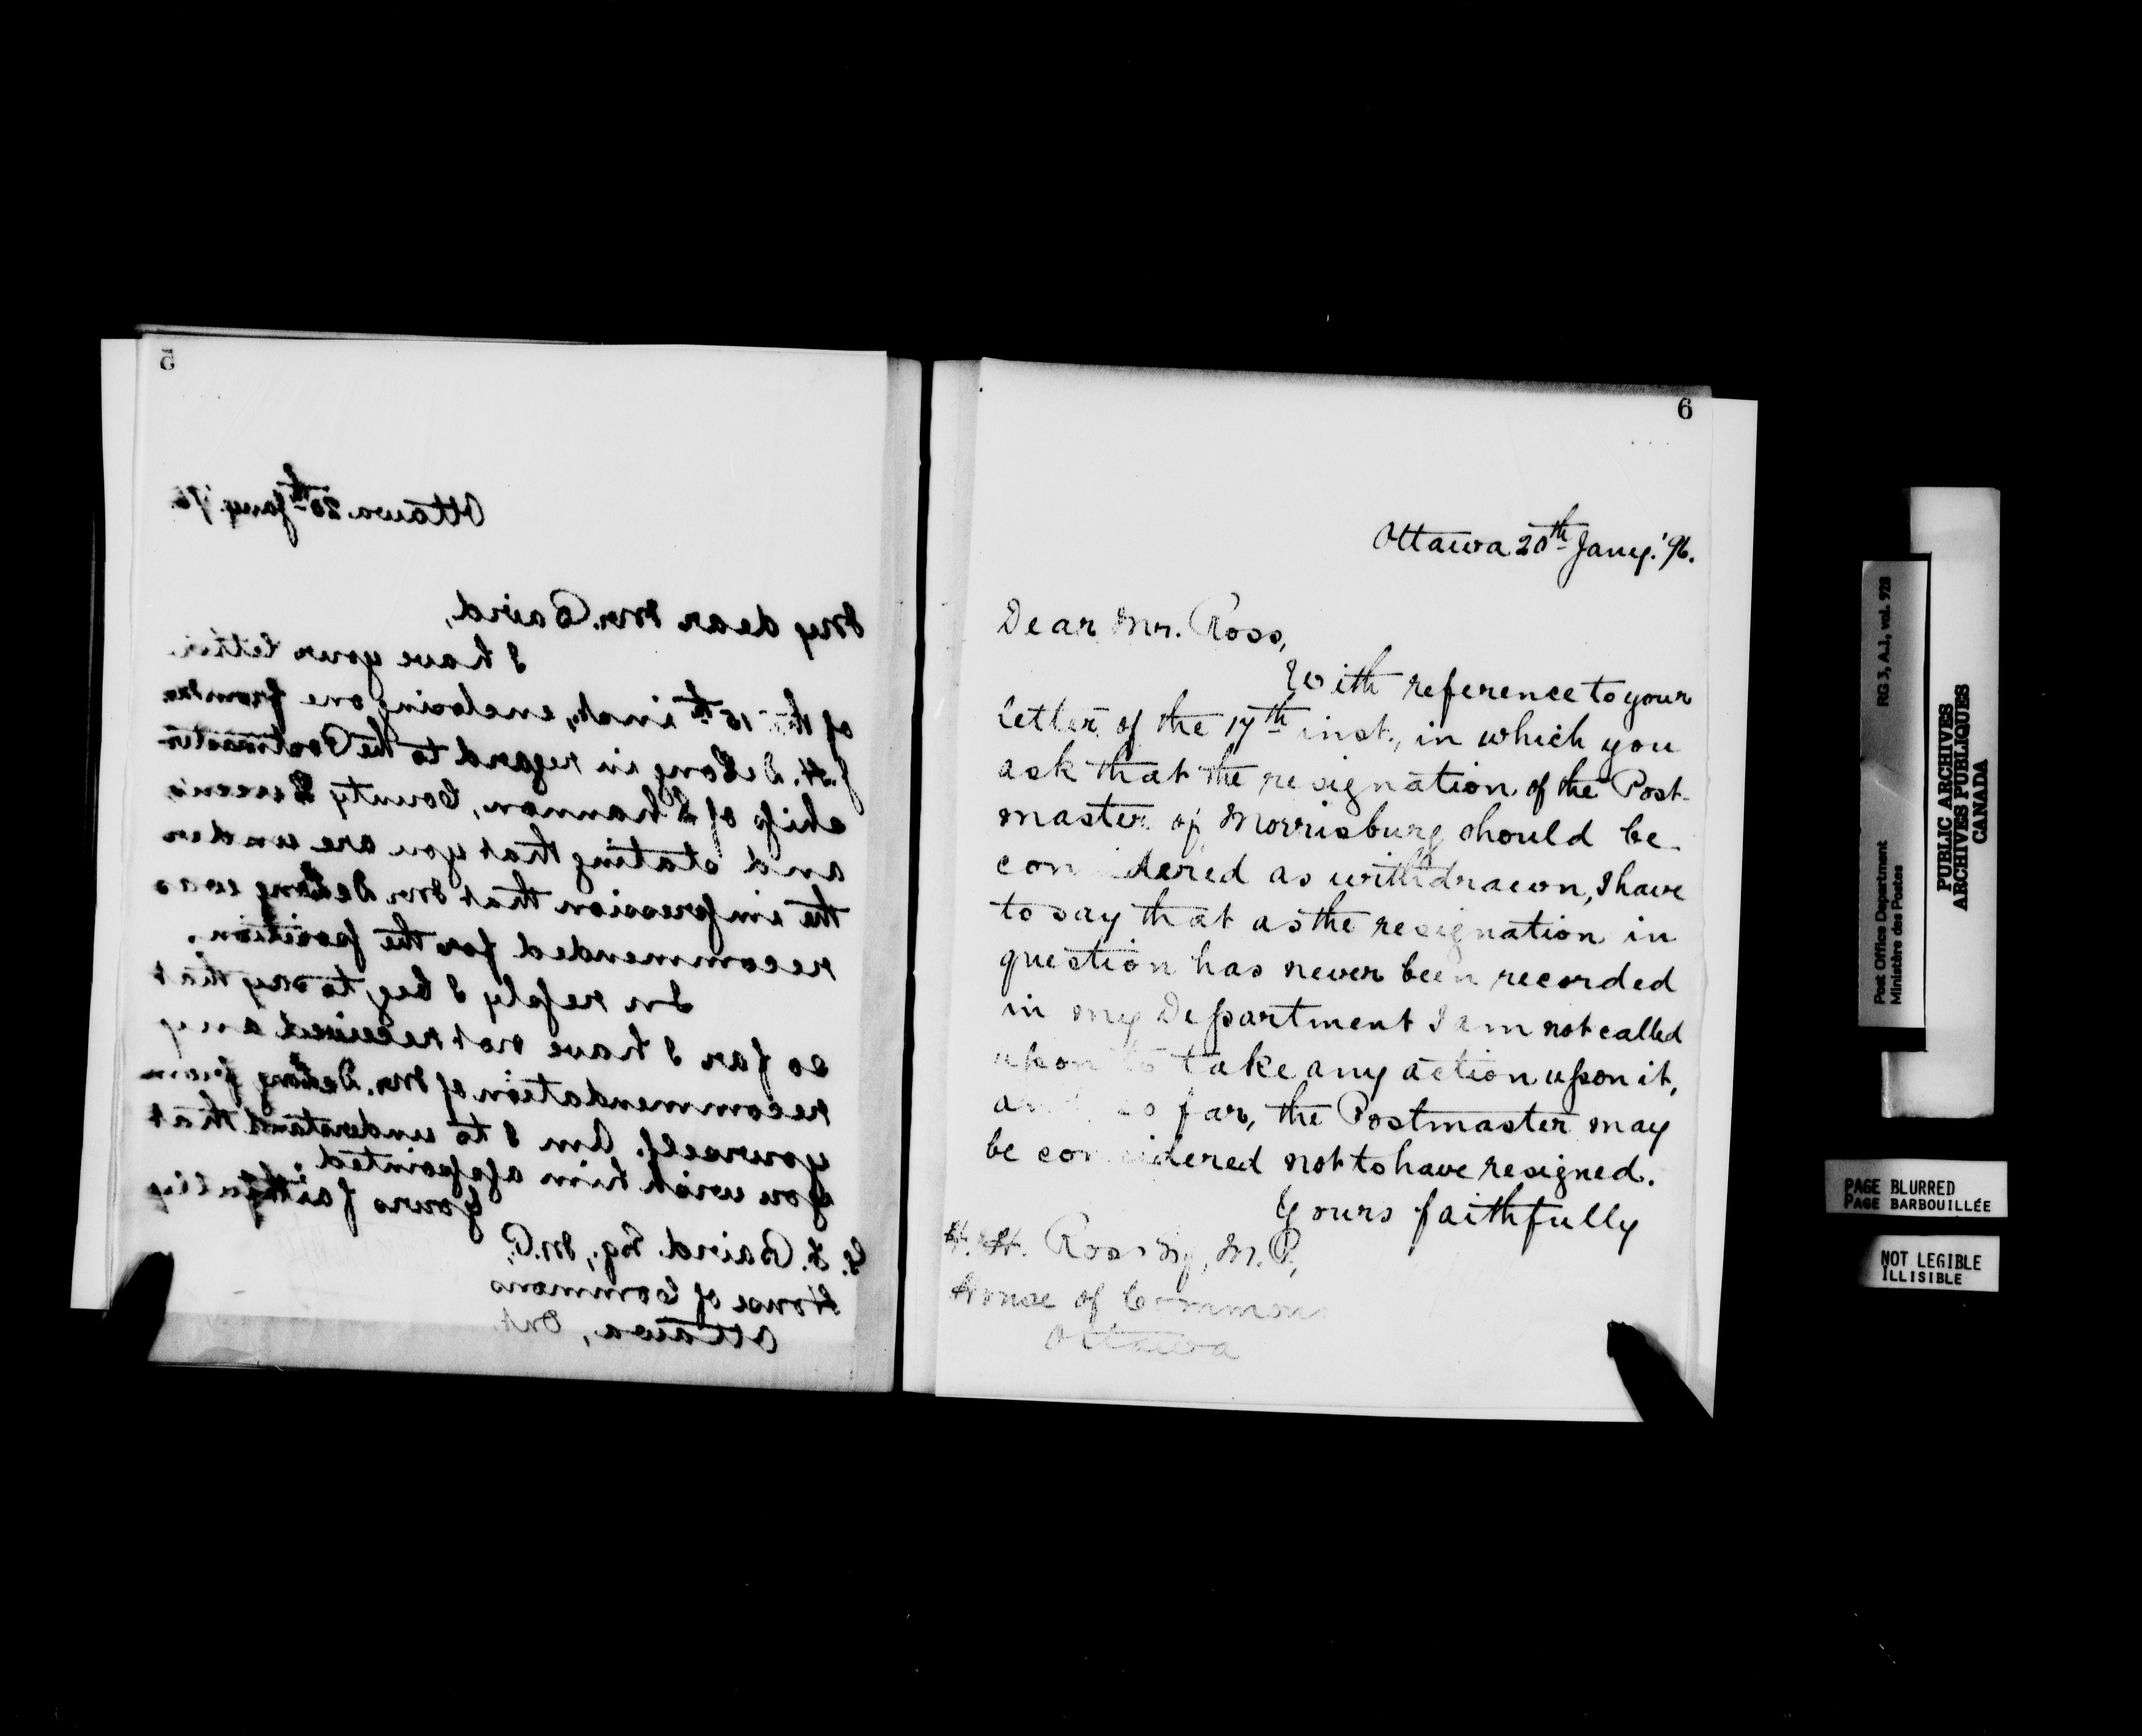 5
Ottawa 20th Jany. '96.
My dear Mr. Baird,
I have your letter
of the 15th inst., enclosing one from Mr.
J. H. DeLong in regard to the Postmaster-
ship of Shannon, County Queen's
and stating that you are under
the impression that Mr. DeLong was
recommended for the position.
In reply I beg to say that
so far I have not received any
recommendation of Mr. DeLong from
yourself. Am I to understand that
you wish him appointed?
Yours faithfully
G. F. Baird Esq., M.P.,
House of Commons
Ottawa, Ont.
6
Ottawa 20th Jany. '96.
Dear Mr. Ross,
With reference to your
letter of the 17th inst., in which you
ask that the resignation of the Post-
master of Morrisburg should be
considered as withdrawn, I have
to say that as the resignation in
question has never been recorded
in my Department I am not called
upon to take any action upon it,
and so far, the Postmaster may
be considered not to have resigned.
Yours faithfully
H. H. Ross Esq, M.P.,
House of Commons
Ottawa
Post Office Department RG 3, A.1, vol. 928
Ministère des Postes
PUBLIC ARCHIVES
ARCHIVES PUBLIQUES
CANADA
PAGE BLURRED
PAGE BARBOUILLÉE
NOT LEGIBLE
ILLISIBLE